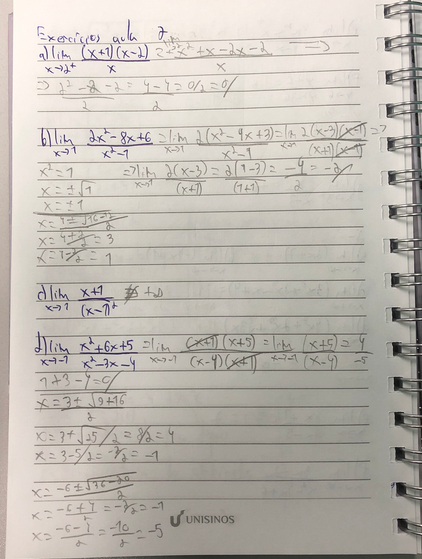 Exercícios aula 2
a) lim x→2+ (x+1)(x-2)/x = lim x²+x-2x-2/x →
⇒ 2²-2-2/2 = 4-4/2 = 0/2 = 0//
b) lim x→1 2x²-8x+6/x²-1 = lim x→1 2(x²-4x+3)/x²-1 = lim x→1 2(x-3)(x-1)/(x+1)(x-1) ⇒
x²=1 ⇒ lim x→1 2(x-3)/(x+1) = 2(1-3)/(1+1) = -4/2 = -2//
x=±√1
x=±1
x=4±√16-12/2
x=4+2/2=3
x=4-2/2=1
c) lim x→1 x+1/(x-1)² +∞
d) lim x→-1 x²+6x+5/x²-3x-4 = lim x→-1 (x+1)(x+5)/(x-4)(x+1) = lim x→-1 (x+5)/(x-4) = 4/-5
1+3-4=0//
x=3±√9+16/2
x=3+√25/2=8/2=4
x=3-5/2=-2/2=-1
x=-6±√36-20/2
x=-6+4/2=-2/2=-1
x=-6-4/2=-10/2=-5
UNISINOS